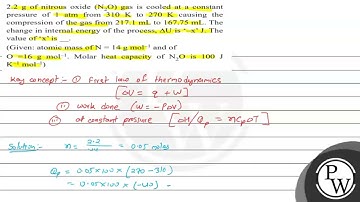 2.2 g of nitrous oxide (N₂O) gas is cooled at a constant
pressure of 1 atm from 310 K to 270 K causing the
compression of the gas from 217.1 mL to 167.75 mL. The
change in internal energy of the process, ΔU is '–x' J. The
value of 'x' is __.
(Given: atomic mass of N = 14 g mol⁻¹ and of
O =16 g mol⁻¹. Molar heat capacity of N₂O is 100 J
K⁻¹ mol⁻¹)
Key concept - ① First law of thermodynamics
[ΔU = q + W]
(ii) work done (W = -PΔV)
(iii) at constant pressure [ΔH/Qp = nCpΔT]
Solution:- n = 2.2/44 = 0.05 moles
Qp = 0.05×100 × (270 - 310)
= 0.05×100 × (-40)
PW